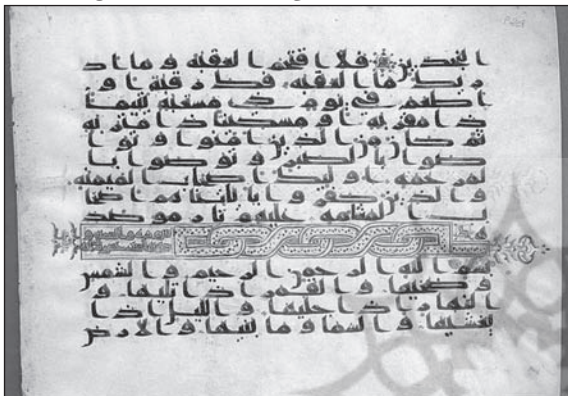 النجدين فلا اقتحم العقبه وما اد
ريك ما العقبه فك رقبه او
اطعم في يوم ذي مسغبه يتيما
ذا مقربه او مسكينا ذا متربه
ثم كان من الذين امنوا وتوا
صوا بالصبر وتوصوا با
لمرحمه اوليك اصحاب الميمنه
والذين كفروا باياتنا هم اصحا
ب المشامه عليهم نار موصد
بسم الله الرحمن الرحيم والشمس
وضحيها والقمر اذا تليها و
النهار اذا جليها والليل اذا
يغشيها والسما وما بنيها والارض